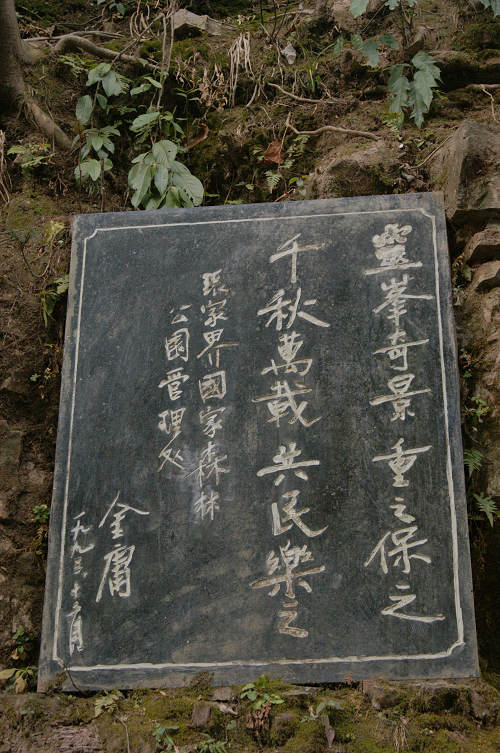 靈峯奇景 重之保之
千秋萬載 共民樂之
張家界國家森林
公園管理处
金庸
一九九三·十二月